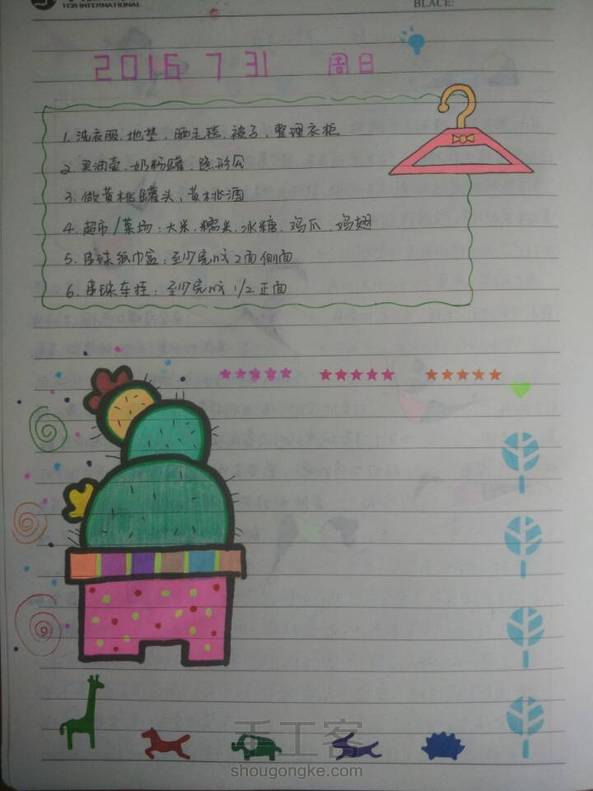 INTERNATIONAL
PLACE:
2016 7 31 周日
1. 洗衣服、地垫、晒毛毯、被子、整理衣柜
2. 买油壶、奶粉罐、隐形
3. 做黄桃罐头、黄桃酒
4. 超市/菜场：大米、糯米、冰糖、鸡爪、鸡翅
5. 串珠纸巾盒：至少完成2面侧面
6. 串珠车挂：至少完成1/2正面
手工客
shougongke.com